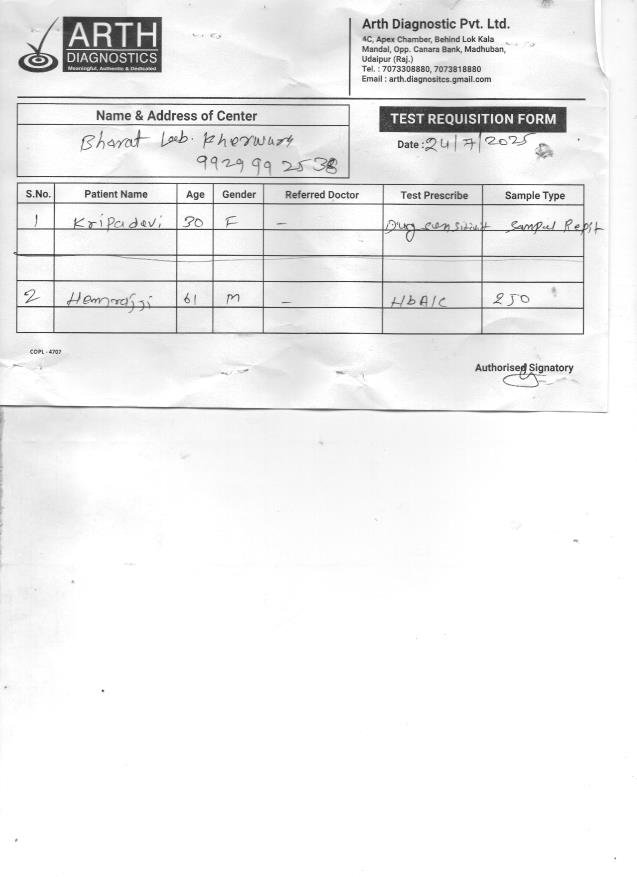 ARTH
DIAGNOSTICS
Meaningful, Authentic & Dedicated
Arth Diagnostic Pvt. Ltd.
4C, Apex Chamber, Behind Lok Kala
Mandal, Opp. Canara Bank, Madhuban,
Udaipur (Raj.)
Tel. : 7073308880, 7073818880
Email : arth.diagnositcs.gmail.com
Name & Address of Center
Bharat Lab. Kherwara
9929 99 2538
TEST REQUISITION FORM
Date : 24/7/2025
S.No. Patient Name Age Gender Referred Doctor Test Prescribe Sample Type
1 Kripadevi 30 F - Drug Sampal
2 Hemrajji 61 M - HbA1C 250
COPL - 4707
Authorised Signatory